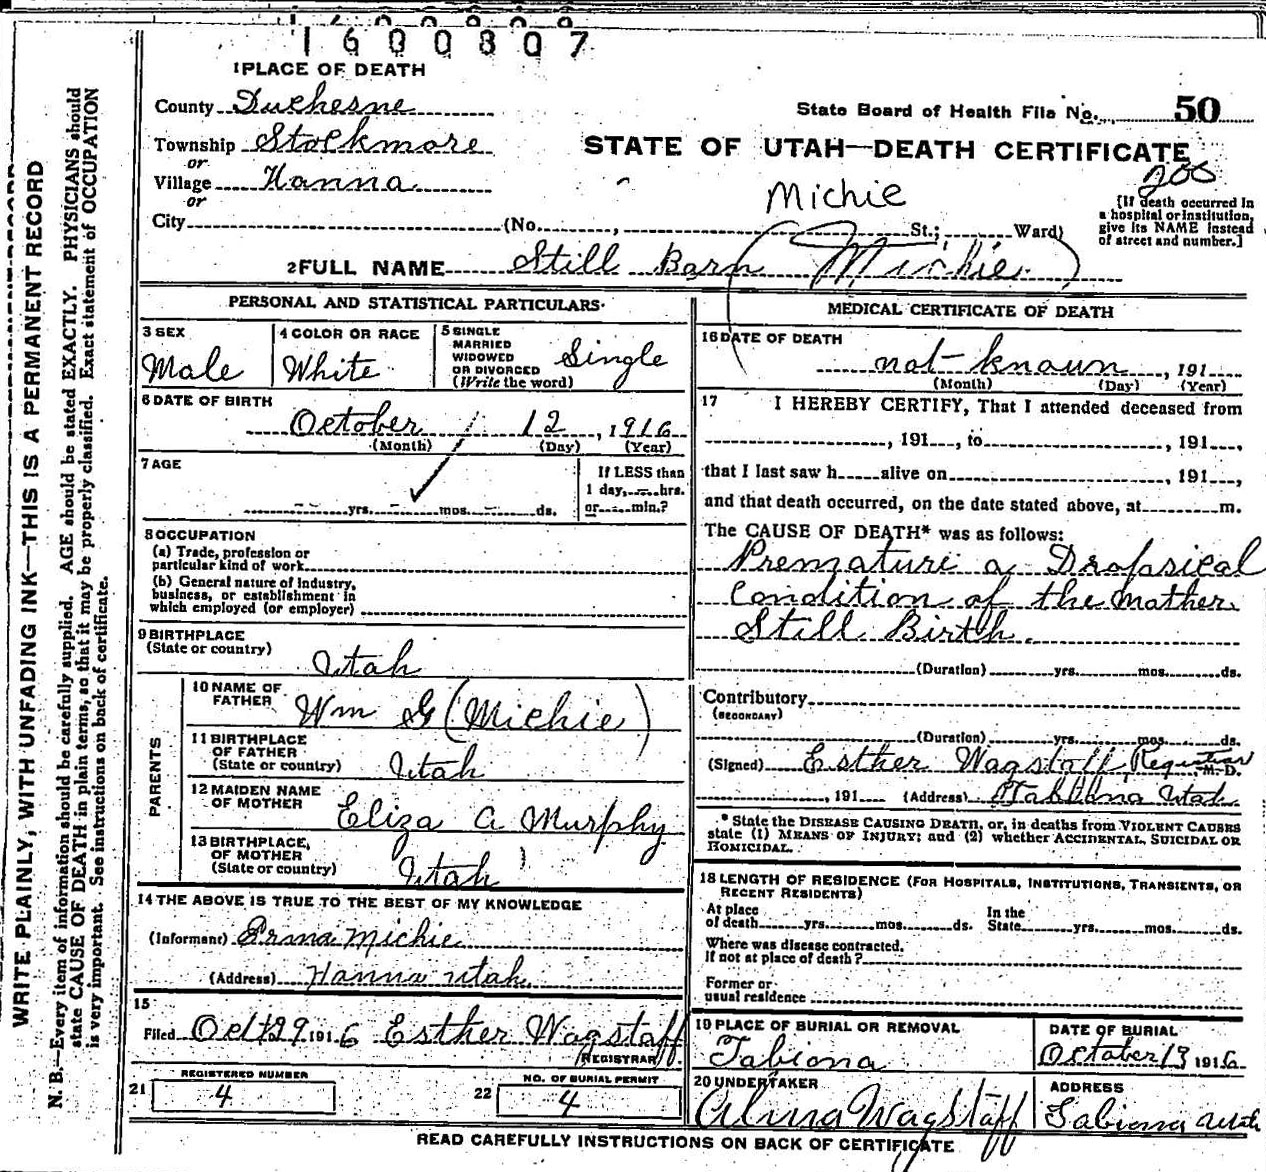 1600807
1 PLACE OF DEATH
County Duchesne
State Board of Health File No. 50
Township Stockmore
STATE OF UTAH—DEATH CERTIFICATE
or
Village Hanna
200
or
Michie
City (No. , St.; Ward)
[If death occurred in
a hospital or institution,
give its NAME instead
of street and number.]
2 FULL NAME Still Born (Michie)
PERSONAL AND STATISTICAL PARTICULARS
3 SEX
Male
4 COLOR OR RACE
White
5 SINGLE
MARRIED
WIDOWED
OR DIVORCED
(Write the word)
Single
6 DATE OF BIRTH
October 12, 1916
(Month) (Day) (Year)
7 AGE
yrs. mos. ds.
If LESS than
1 day, hrs.
or min.?
8 OCCUPATION
(a) Trade, profession or
particular kind of work
(b) General nature of industry,
business, or establishment in
which employed (or employer)
9 BIRTHPLACE
(State or country)
Utah
PARENTS
10 NAME OF
FATHER
Wm G (Michie)
11 BIRTHPLACE
OF FATHER
(State or country)
Utah
12 MAIDEN NAME
OF MOTHER
Eliza A Murphy
13 BIRTHPLACE,
OF MOTHER
(State or country)
Utah
14 THE ABOVE IS TRUE TO THE BEST OF MY KNOWLEDGE
(Informant) Michie
(Address) Hanna Utah
15
Filed Oct 29 1916 Esther Wagstaff
REGISTRAR.
21 REGISTERED NUMBER
4
22 NO. OF BURIAL PERMIT
4
MEDICAL CERTIFICATE OF DEATH
16 DATE OF DEATH
not known, 191
(Month) (Day) (Year)
17 I HEREBY CERTIFY, That I attended deceased from
, 191 , to , 191 ,
that I last saw h alive on , 191 ,
and that death occurred, on the date stated above, at m.
The CAUSE OF DEATH* was as follows:
Premature a Dropsical
Condition of the Mother
Still Birth.
(Duration) yrs. mos. ds.
Contributory
(SECONDARY)
(Duration) yrs. mos. ds.
(Signed) Esther Wagstaff, Registrar M. D.
, 191 (Address) Tabiona Utah
* State the DISEASE CAUSING DEATH, or, in deaths from VIOLENT CAUSES
state (1) MEANS OF INJURY; and (2) whether ACCIDENTAL, SUICIDAL OR
HOMICIDAL.
18 LENGTH OF RESIDENCE (FOR HOSPITALS, INSTITUTIONS, TRANSIENTS, OR
RECENT RESIDENTS)
At place
of death yrs. mos. ds.
In the
State yrs. mos. ds.
Where was disease contracted.
If not at place of death?
Former or
usual residence
19 PLACE OF BURIAL OR REMOVAL
Tabiona
DATE OF BURIAL
October 13 1916
20 UNDERTAKER
Alma Wagstaff
ADDRESS
Tabiona Utah
READ CAREFULLY INSTRUCTIONS ON BACK OF CERTIFICATE
WRITE PLAINLY, WITH UNFADING INK—THIS IS A PERMANENT RECORD
N. B.—Every item of information should be carefully supplied. AGE should be stated EXACTLY. PHYSICIANS should
state CAUSE OF DEATH in plain terms, so that it may be properly classified. Exact statement of OCCUPATION
is very important. See instructions on back of certificate.